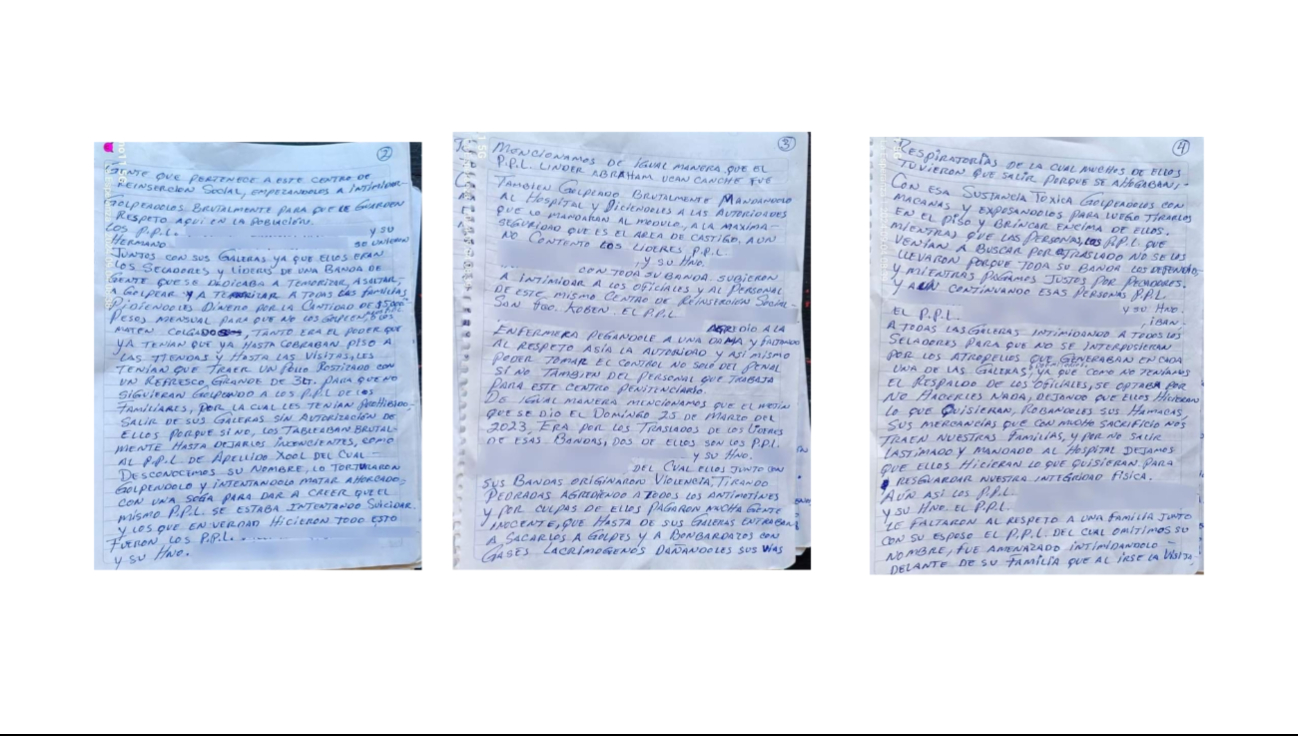 2
GENTE QUE PERTENECE A ESTE CENTRO DE
REINSERCION SOCIAL, EMPEZANDOLOS A INTIMIDAR
GOLPEADOLOS BRUTALMENTE PARA QUE LE GUARDEN
RESPETO AQUI EN LA POBLACIÓN.
LOS P.P.L. Y SU
HERMANO SE UNIERON
JUNTOS CON SUS GALERAS YA QUE ELLOS ERAN
LOS SELADORES Y LIDERES DE UNA BANDA DE
GENTE QUE SE DADICABA A TEMORIZAR, ASALTAR,
A GOLPEAR Y A TEMORIZAR A TODAS LAS FAMILIAS
PIDIENDOLES DINERO POR LA CANTIDAD DE
PESOS MENSUAL PARA QUE NO LOS GOLPEN, O LOS
MATEN COLGADOS, TANTO ERA EL PODER QUE
YA TENIAN QUE YA HASTA COBRABAN PISO A
LAS TIENDAS Y HASTA LAS VISITAS, LES
TENIAN QUE TRAER UN POLLO ROSTIZADO CON
UN REFRESCO GRANDE DE 3LT. PARA QUE NO
SIGUIERAN GOLPENDO A LOS P.P.L DE LOS
FAMILIARES, POR LA CUAL LES TENIAN PROHIBIDO
SALIR DE SUS GALERAS SIN AUTORIZACIÓN DE
ELLOS PORQUE SI NO, LOS TABLEABAN BRUTAL-
MENTE HASTA DEJARLOS INCENCIENTES, COMO
AL P.P.L. DE APELLIDO XOOL DEL CUAL -
DESCONOCIMOS SU NOMBRE, LO TORTURARON
GOLPENDOLO Y INTENTANDOLO MATAR AHORCADO,
CON UNA SOGA PARA DAR A CREER QUE EL
MISMO P.P.L. SE ESTABA INTENTANDO SUICIDAR.
Y LOS QUE EN VERDAD HICIERON TODO ESTO
FUERON LOS P.P.L.
Y SU HNO.
3
MENCIONAMOS DE IGUAL MANERA QUE EL
P.P.L. LINDER ABRAHAM UCAN CANCHE FUE
TAMBIEN GOLPEADO BRUTALMENTE MANDANDOLO
AL HOSPITAL Y DICIENDOLES A LAS AUTORIDADES
QUE LO MANDARAN AL MODULO, A LA MAXIMA-
SEGURIDAD QUE ES EL AREA DE CASTIGO, AUN
NO CONTENTO LOS LIDERES P.P.L
, Y SU HNO.
CON TODA SU BANDA. SUBIERON
A INTIMIDAR A LOS OFICIALES Y AL PERSONAL
DE ESTE MISMO CENTRO DE REINSERCION SOCIAL-
SAN FCO. KOBEN. EL P.P.L
AGREDIO A LA
ENFERMERA PEGANDOLE A UNA DAMA Y FALTANDO
AL RESPETO ASÍA LA AUTORIDAD Y ASÍ MISMO
PODER TOMAR EL CONTROL NO SOLO DEL PENAL
SI NO TAMBIEN DEL PERSONAL QUE TRABAJA
PARA ESTE CENTRO PENITENCIARIO.
DE IGUAL MANERA MENCIONAMOS QUE EL MOTIN
QUE SE DIO EL DOMINGO 25 DE MARZO DEL
2023, ERA POR LOS TRASLADOS DE LOS LIDERES
DE ESAS BANDAS, DOS DE ELLOS SON LOS P.P.L.
Y SU HNO.
DEL CUAL ELLOS JUNTO CON
SUS BANDAS ORIGINARON VIOLENCIA, TIRANDO
PEDRADAS AGREDIENDO A TODOS LOS ANTIMOTINES
Y POR CULPAS DE ELLOS PAGARON MUCHA GENTE
INOCENTE, QUE HASTA DE SUS GALERAS ENTRABAN
A SACARLOS A GOLPES Y A BONBARDATOS CON
GASES LACRIMOGENOS DAÑANDOLES SUS VIAS
4
RESPIRATORIAS DE LA CUAL MUCHOS DE ELLOS
TUVIERON QUE SALIR PORQUE SE AHOGABAN;
CON ESA SUSTANCIA TOXICA GOLPEADOLOS CON
MACANAS Y EXPOSANDOLOS PARA LUEGO TIRARLOS
EN EL PISO Y BRINCAR ENCIMA DE ELLOS.
MIENTRAS QUE LAS PERSONAS, LOS P.P.L QUE
VENIAN A BUSCAR POR TRASLADO NO SE LOS
LLEVARON PORQUE TODA SU BANDA LOS DEFENDIO
Y MIENTRAS PAGAMOS JUSTOS POR PECADORES.
Y AUN CONTINUANDO ESAS PERSONAS P.P.L
Y SU HNO.
EL P.P.L. , IBAN
A TODAS LAS GALERAS INTIMIDANDO A TODOS LOS
SELADORES PARA QUE NO SE INTERPUSIERAN
POR LOS ATROPELLOS QUE GENERABAN EN CADA
UNA DE LAS GALERAS, YA QUE COMO NO TENIAMOS
EL RESPALDO DE LOS OFICIALES, SE OPTABA POR
NO HACERLES NADA, DEJANDO QUE ELLOS HICIERAN
LO QUE QUISIERAN, ROBANDOLES SUS HAMACAS,
SUS MERCANCIAS QUE CON MUCHO SACRIFICIO NOS
TRAEN NUESTRAS FAMILIAS, Y POR NO SALIR
LASTIMADO Y MANDADO AL HOSPITAL DEJAMOS
QUE ELLOS HICIERAN LO QUE QUISIERAN PARA
RESGUARDAR NUESTRA INTEGRIDAD FISICA.
AÚN ASI LOS P.P.L.
Y SU HNO. EL P.P.L.
LE FALTARON AL RESPETO A UNA FAMILIA JUNTO
CON SU ESPOSO EL P.P.L. DEL CUAL OMITIMOS SU
NOMBRE, FUE AMENAZADO INTIMIDANDOLO -
DELANTE DE SU FAMILIA QUE AL IRSE LA VISITA,